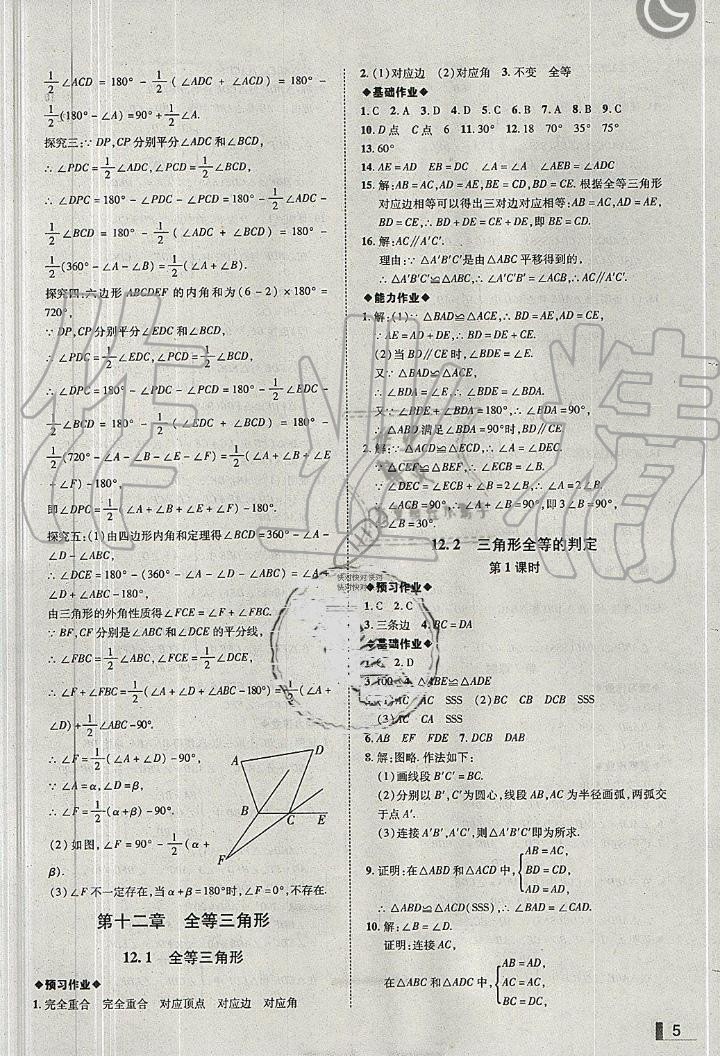 1/2∠ACD = 180° - 1/2(∠ADC + ∠ACD) = 180° -
1/2(180° - ∠A) = 90° + 1/2∠A.
探究三:∵DP,CP分别平分∠ADC和∠BCD,
∴∠PDC = 1/2∠ADC,∠PCD = 1/2∠BCD,
∴∠DPC = 180° - ∠PDC - ∠PCD = 180° - 1/2∠ADC -
1/2∠BCD = 180° - 1/2(∠ADC + ∠BCD) = 180° -
1/2(360° - ∠A - ∠B) = 1/2(∠A + ∠B).
探究四:六边形ABCDEF的内角和为(6-2)×180° =
720°,
∵DP,CP分别平分∠EDC和∠BCD,
∴∠PDC = 1/2∠EDC,∠PCD = 1/2∠BCD,
∴∠DPC = 180° - ∠PDC - ∠PCD = 180° - 1/2∠EDC -
1/2∠BCD = 180° - 1/2(∠EDC + ∠BCD) = 180° -
1/2(720° - ∠A - ∠B - ∠E - ∠F) = 1/2(∠A + ∠B + ∠E
+ ∠F) - 180°.
即∠DPC = 1/2(∠A + ∠B + ∠E + ∠F) - 180°.
探究五:(1)由四边形内角和定理得∠BCD = 360° - ∠A
- ∠D - ∠ABC,
∴∠DCE = 180° - (360° - ∠A - ∠D - ∠ABC) = ∠A +
∠D + ∠ABC - 180°.
由三角形的外角性质得∠FCE = ∠F + ∠FBC.
∵BF,CF分别是∠ABC和∠DCE的平分线,
∴∠FBC = 1/2∠ABC,∠FCE = 1/2∠DCE,
∴∠F + ∠FBC = 1/2(∠A + ∠D + ∠ABC - 180°) = 1/2(∠A +
∠D) + 1/2∠ABC - 90°.
∴∠F = 1/2(∠A + ∠D) - 90°,
∵∠A = α,∠D = β,
∴∠F = 1/2(α + β) - 90°.
(2)如图,∠F = 90° - 1/2(α +
β).
A D B C E F
(3)∠F不一定存在,当α + β = 180°时,∠F = 0°,不存在.
第十二章 全等三角形
12.1 全等三角形
◆预习作业◆
1. 完全重合 完全重合 对应顶点 对应边 对应角
2. (1)对应边 (2)对应角 3. 不变 全等
◆基础作业◆
1. C 2. A 3. D 4. D 5. C 6. B 7. A 8. B 9. C
10. D点 C点 6 11. 30° 12. 18 70° 35° 75°
13. 60°
14. AE = AD EB = DC ∠A = ∠A ∠AEB = ∠ADC
15. 解:AB = AC,AD = AE,BE = CD,根据全等三角形
对应边相等可以得出三对边对应相等:AB = AC,AD = AE,
BD = CE,∴BD + DE = CE + DE,即BE = CD.
16. 解:AC∥A'C'.
理由:∵△A'B'C'是由△ABC平移得到的,
∴△A'B'C'≌△ABC,∴AC∥A'C'.
◆能力作业◆
1. 解:(1)∵△BAD≌△ACE,∴BD = AE,AD = CE,
∵AE = AD + DE,∴BD = DE + CE.
(2)当BD∥CE时,∠BDE = ∠E.
又∵△BAD≌△ACE,
∴∠BDA = ∠E,∴∠BDE = ∠BDA.
又∵∠BDE + ∠BDA = 180°,∴∠BDA = 90°,
∴△ABD满足∠BDA = 90°时,BD∥CE.
2. 解:∵△ABC≌△ECD,∴∠A = ∠DEC.
∵△CEF≌△BEF,∴∠B = ∠ECF,
∴∠DEC = ∠ECF + ∠B = 2∠B,∴∠A = 2∠B.
∵∠ACB = 90°,∴∠A + ∠B = 90°,即3∠B = 90°,
∴∠B = 30°.
12.2 三角形全等的判定
第1课时
◆预习作业◆
1. C 2. C
3. 三条边 4. BC = DA
◆基础作业◆
2. D
3. 100° 4. △ABE≌△ADE
AC AC SSS (2)BC DCB SSS
(3)AC CA SSS
6. AB DC AC 7. DCB DAB SSS
8. 解:图略. 作法如下:
(1)画线段B'C' = BC.
(2)分别以B',C'为圆心,线段AB,AC为半径画弧,两弧交
于点A'.
(3)连接A'B',A'C',则△A'B'C'即为所求.
9. 证明:在△ABD和△ACD中, AB = AC, BD = CD, AD = AD,
∴△ABD≌△ACD(SSS),∴∠B = ∠C.
10. 解:∠B = ∠D.
证明:连接AC,
在△ABC和△ADC中, AB = AD, AC = AC, BC = BC,
5
作业精